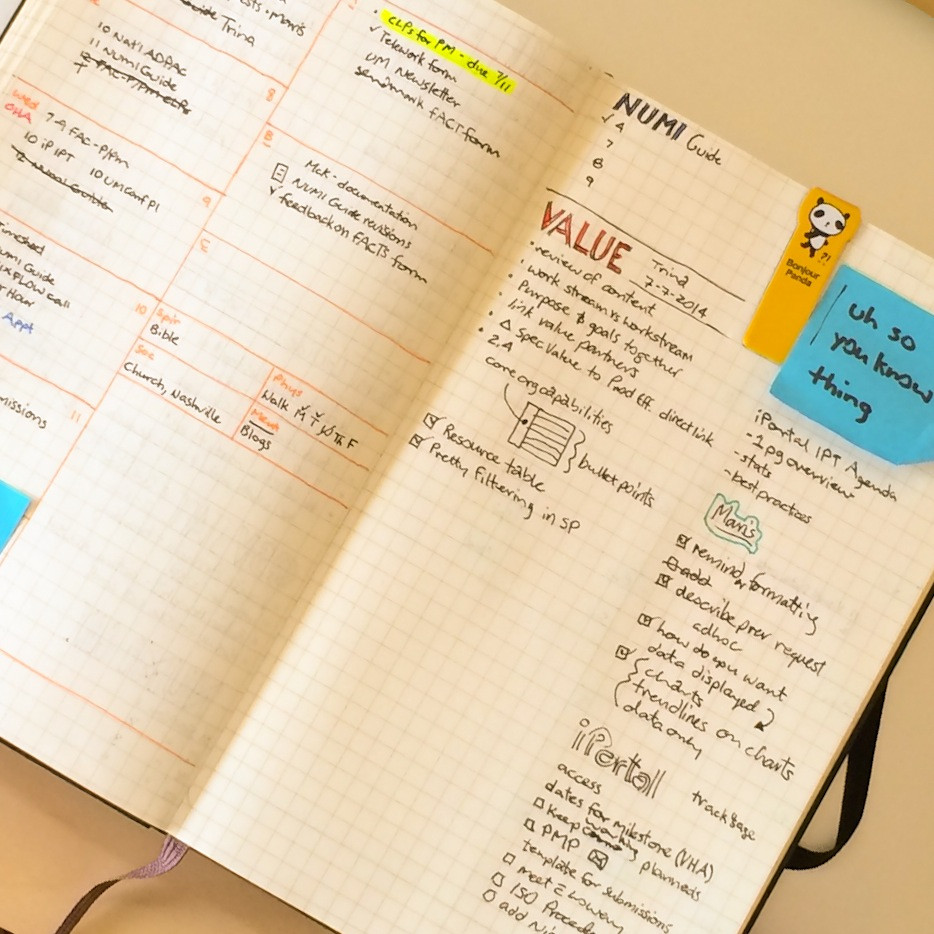 Trina
10 Nat'l ADPAC
11 NUMI Guide
8
Wed
OHA
7-9 FAC-P/PM
10 iP IPT
10 UM Conf Pl
9
Timesheet
NUMI Guide
Appt
11
• CLPs for PM - due 7/11
✓ Telework form
UM Newsletter
Semimark FACT form
B
McK - documentation
NUMI Guide revisions
✓ feedback on FACTS form
C
10
Spir
Bible
Soc
Church, Nashville
Phys
Walk M T W Th F
Ment
Blogs
NUMI Guide
✓ 4
7
8
9
VALUE
Trina
7-7-2014
• review of content
• work stream vs workstream
• Purpose & goals together
• link value partners
• Δ spec value to Prod Eff. direct link
2.4
core org capabilities
bullet points
Resource table
Pretty Filtering in SP
Bonjour
Panda
?!
uh so
you know
thing
iPortal IPT Agenda
- 1 pg overview
- stats
- best practices
Mari's
remind formatting
add
describe prev request
adhoc
how do you want
data displayed?
charts
trendlines on charts
data only
iPortal
access
track usage
dates for milestone (VHA)
keep working
PMP planneds
template for submissions
meet
ISO Proced
add